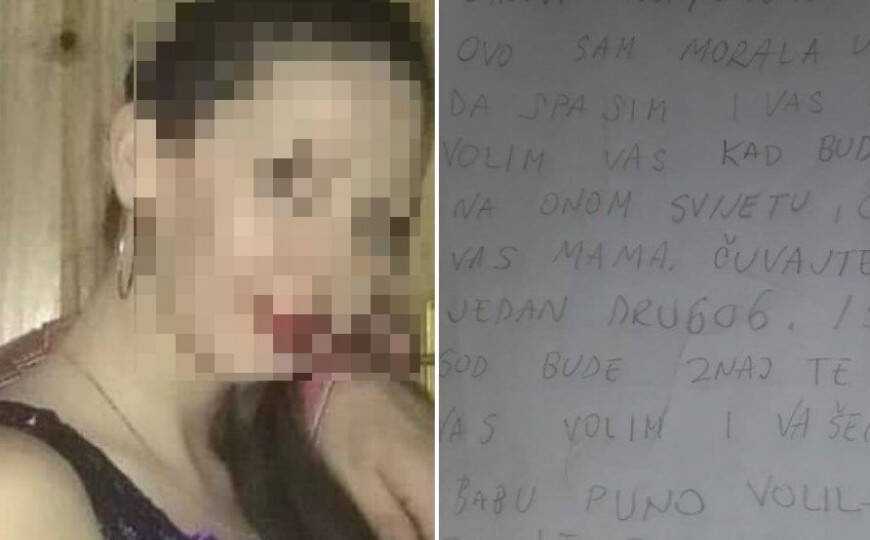 OVO SAM MORALA
DA SPASIM I VAS
VOLIM VAS KAD BUD
NA ONOM SVIJETU,
VAS MAMA. ČUVAJTE
JEDAN DRUGOG.
GOD BUDE ZNAJ TE
VAS VOLIM I VAŠEG
BABU PUNO VOLIL-